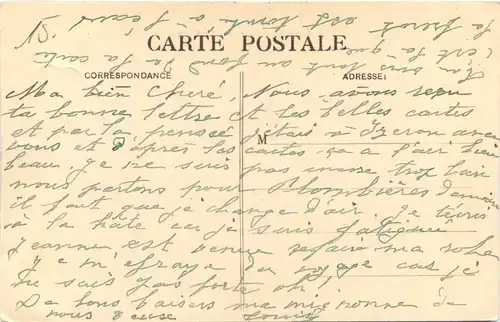 15.
CARTE POSTALE
CORRESPONDANCE
ADRESSE:
M
Ma bien cheré, Nous avons reçu
ta bonne lettre et les belles cartes
et par la pensée j'étais à Izeron avec
vous et d'après les cartes ça a l'air bien
beau. Je ne suis pas encore trop bien
nous partons pour Plombières demain
il faut que je change d'air. Je t'écris
à la hate car je suis fatiguée
Jeanne est venue refaire ma robe
Je m'effraye du voyage car je
ne suis pas forte oh!
De bons baisers ma mignonne de
nous deux Louis